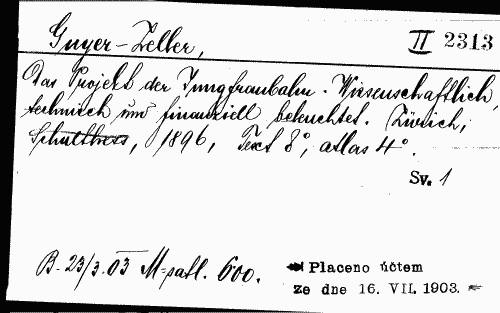 Guyer-Zeller,
II 2313
Das Projekt der Jungfraubahn. Wissenschaftlich,
technisch und finanziell beleuchtet. Zürich,
Schulthess, 1896, Text 8°, atlas 4°.
Sv. 1
B. 23/3. 03 M=satl. 600.
Placeno účtem
ze dne 16. VII. 1903.